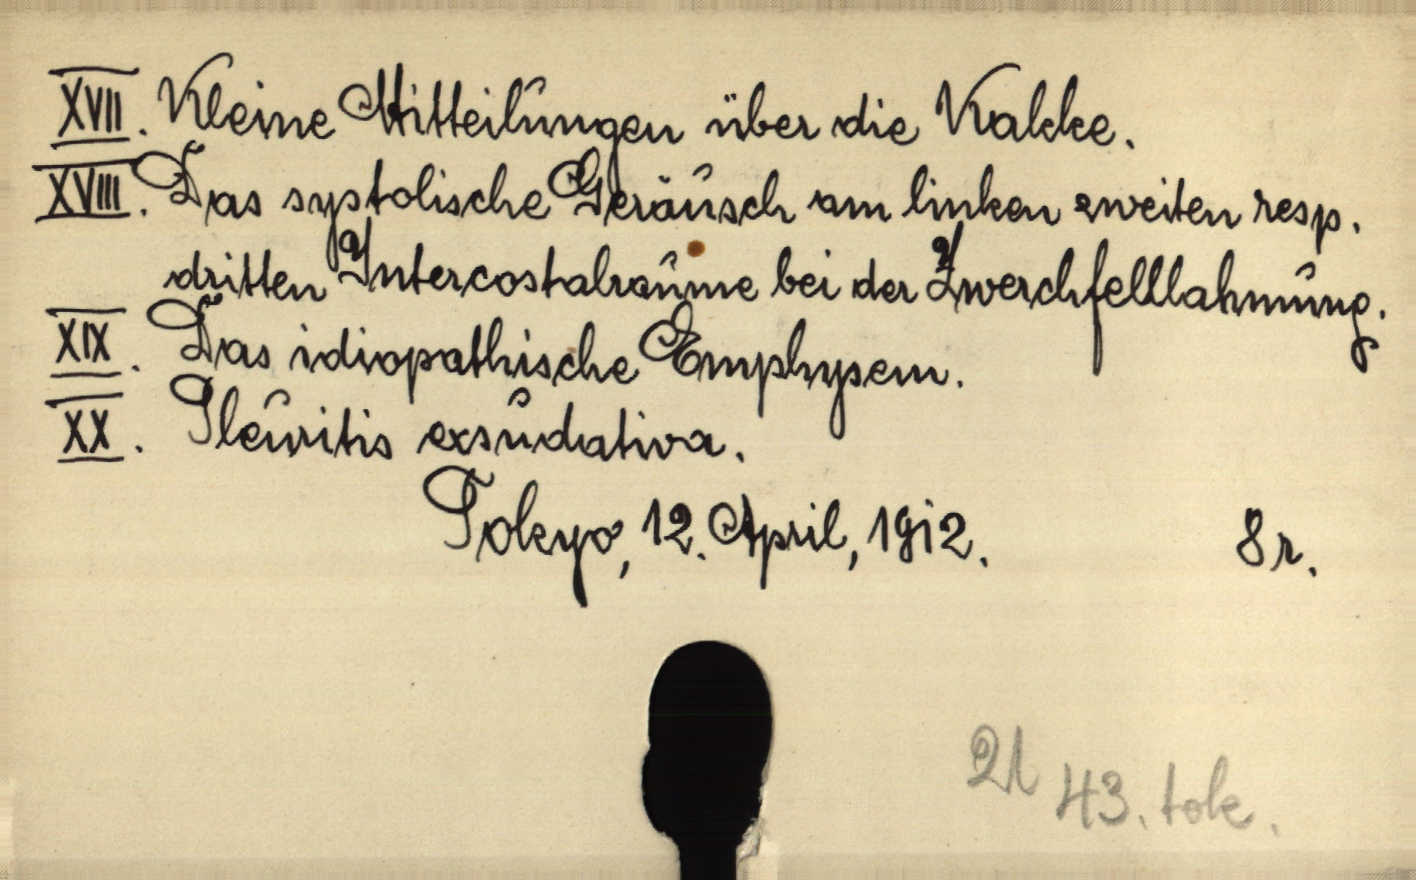 XVII. Kleine Mitteilungen über die Kakke.
XVIII. Das systolische Geräusch am linken zweiten resp.
dritten Intercostalraume bei der Zwerchfellahmung.
XIX. Das idiopathische Emphysem.
XX. Pleuritis exsudativa.
Tokyo, 12. April, 1912. 8r.
21 43. tok.